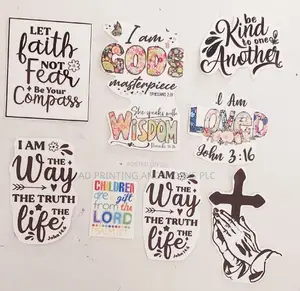 LET
faith
NOT
Fear
Be Your
Compass
I am
GODS
masterpiece
EPHESIANS 2:10
be
Kind
to one
Another
She speaks with
WISDOM
I Am
LOVED
John 3:16
I AM
THE
Way
THE TRUTH
THE
life
John 14:6
CHILDREN
are a
gift
from the
LORD
I AM
THE
Way
THE TRUTH
THE
life
John 14:6
AD PRINTING AND
PLC